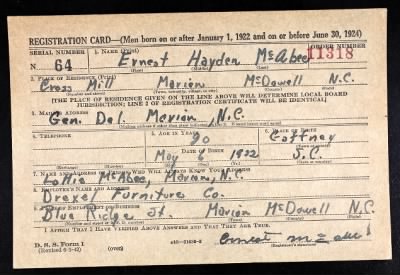 REGISTRATION CARD—(Men born on or after January 1, 1922 and on or before June 30, 1924)
SERIAL NUMBER 1. NAME (Print) ORDER NUMBER
N 64 Ernest Hayden McAbee 11318
(First) (Middle) (Last)
2. PLACE OF RESIDENCE (Print)
Cross Mill Marion McDowell N.C.
(Number and street) (Town, township, village, or city) (County) (State)
[THE PLACE OF RESIDENCE GIVEN ON THE LINE ABOVE WILL DETERMINE LOCAL BOARD
JURISDICTION; LINE 2 OF REGISTRATION CERTIFICATE WILL BE IDENTICAL]
3. MAILING ADDRESS
Gen. Del. Marion, N.C.
4. TELEPHONE 5. AGE IN YEARS 6. PLACE OF BIRTH
20 Gaffney
DATE OF BIRTH
May 6 1922 S.C.
7. NAME AND ADDRESS OF PERSON WHO WILL ALWAYS KNOW YOUR ADDRESS
Lottie McAbee, Marion, N.C.
8. EMPLOYER'S NAME AND ADDRESS
Drexel Furniture Co.
9. PLACE OF EMPLOYMENT OR BUSINESS
Blue Ridge St. Marion McDowell N.C.
(Number and street) (Town) (County) (State)
I AFFIRM THAT I HAVE VERIFIED ABOVE ANSWERS AND THAT THEY ARE TRUE.
D. S. S. Form 1 Ernest McAbee
(Revised 6-9-42) (over)